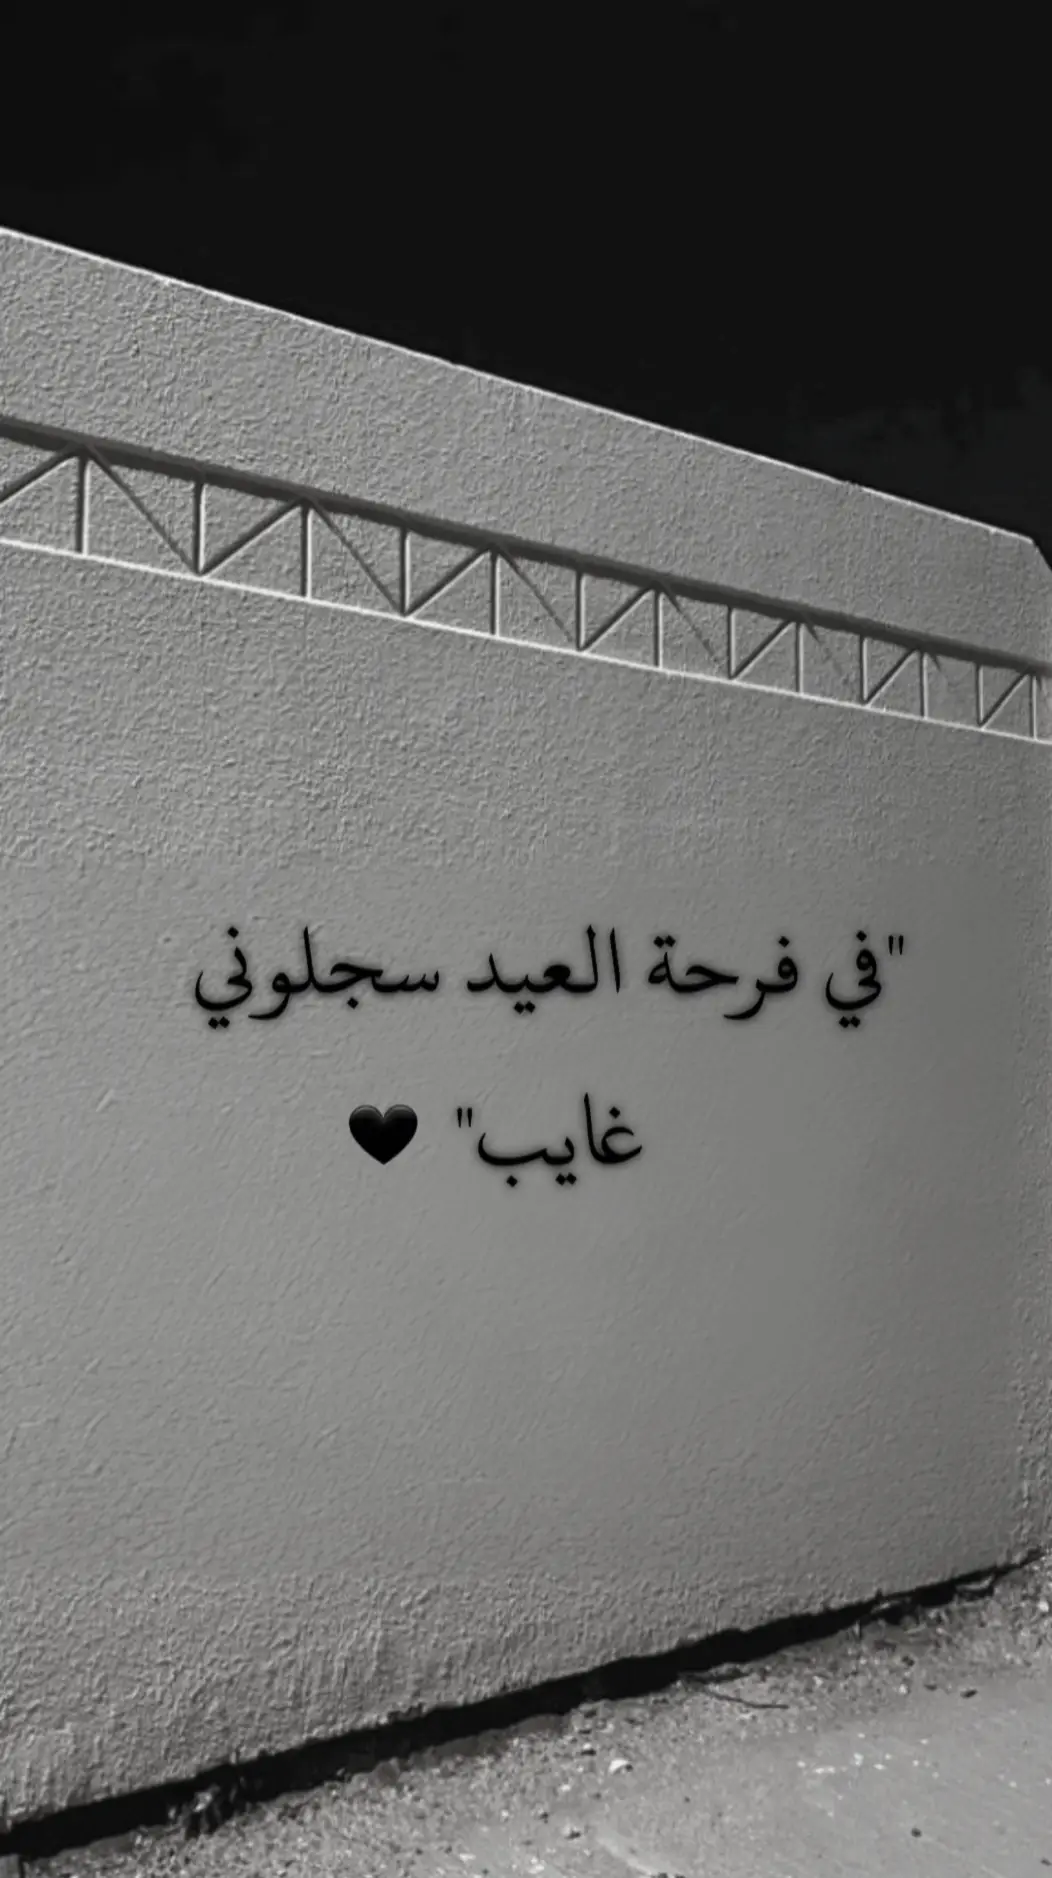 "في فرحة العيد سجلوني
غايب" 🖤